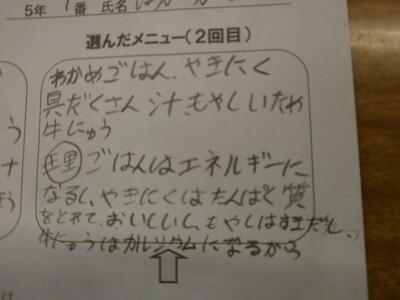 5年 1番 氏名
選んだメニュー(2回目)
わかめごはん、やきにく
具だくさん汁、もやしいため
牛にゅう
ごはんはエネルギーに
なるし、やきにくはたんぱく質
をとれて、おいしいし、もやしは
牛にゅうはカルシウムになるから
う
ナ